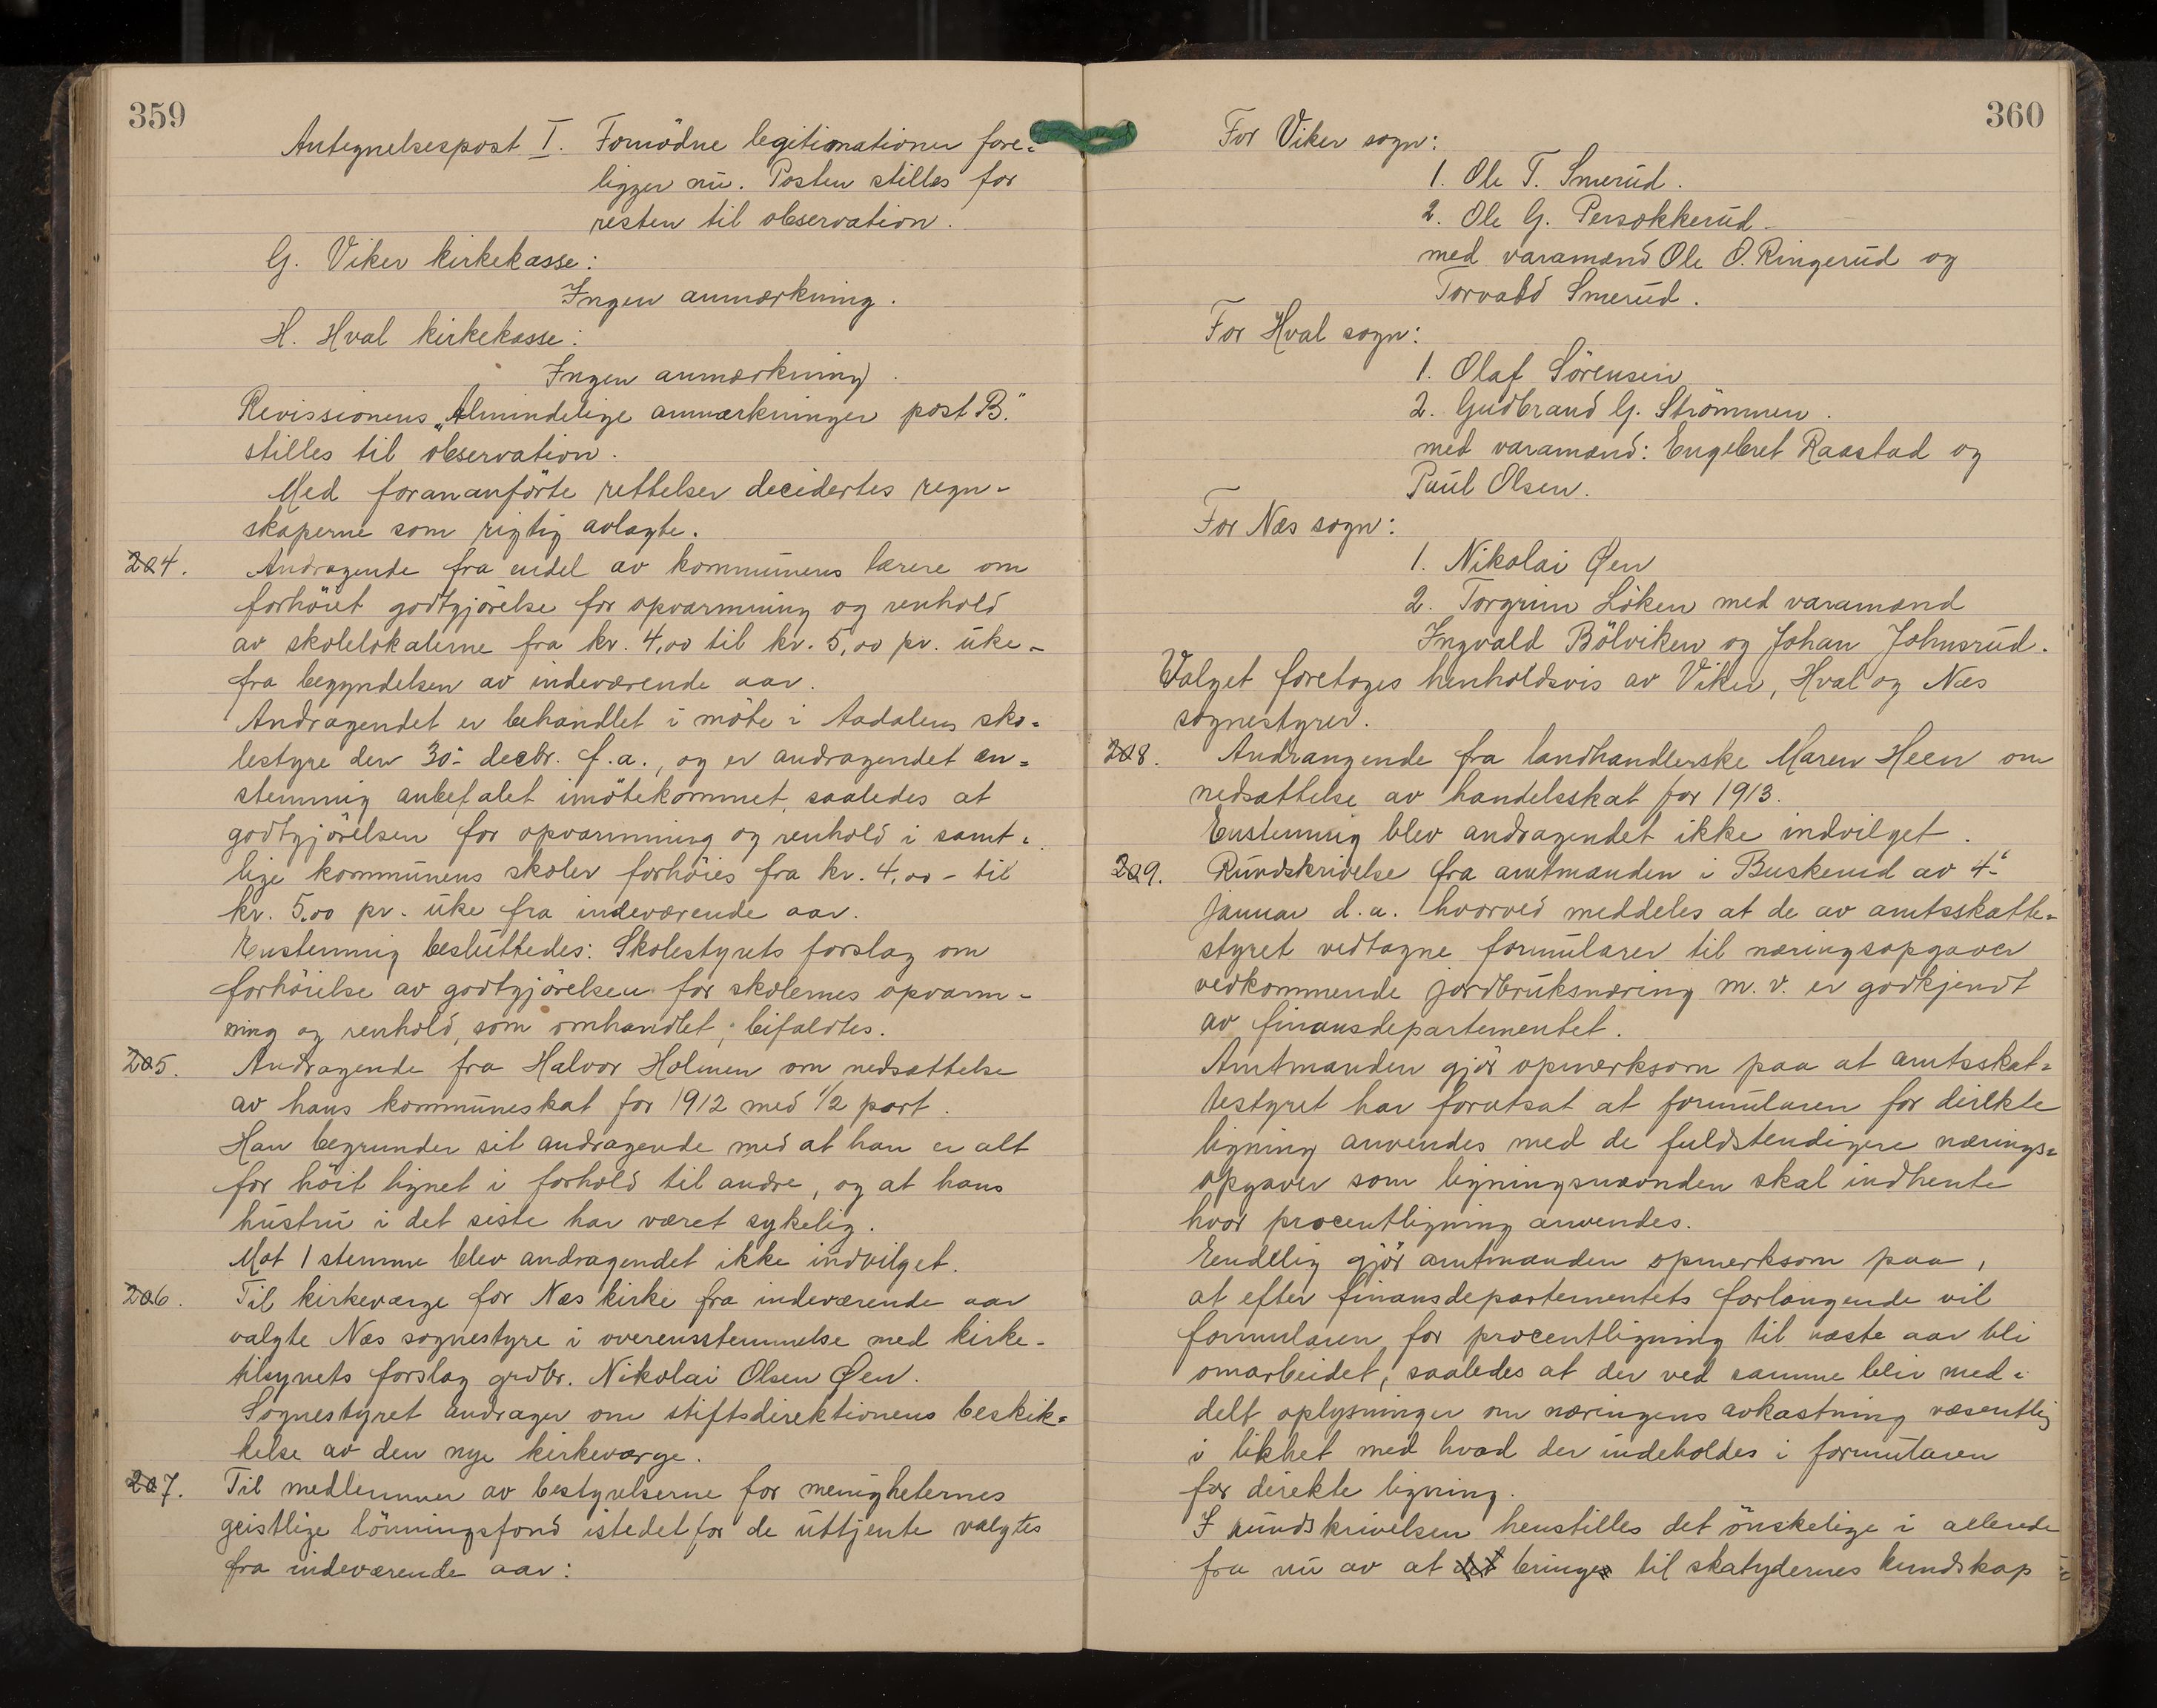 359
Antegnelsespost I. Fornödne legitimationer fore=
ligger nu. Posten stilles for
resten til observation.
G. Viker kirkekasse:
Ingen anmærkning.
H. Hval kirkekasse:
Ingen anmærkning.
Revissionens „Almindelige anmærkninger post B."
stilles til observation.
Med forananförte rettelser decidertes regn-
skaperne som rigtig avlagte.
204. Andragende fra endel av kommunens lærere om
forhöiet godtgjörelse for opvarmning og renhold
av skolelokalerne fra kr. 4,00 til kr. 5,00 pr. uke -
fra begyndelsen av indeværende aar.
Andragendet er behandlet i möte i Aadalens sko=
lestyre den 30- decbr. f.a., og er andragendet en=
stemmig anbefalet imötekommet saaledes at
godtgjörelsen for opvarmning og renhold i samt=
lige kommunens skoler forhöies fra kr. 4,00 - til
kr. 5,00 pr. uke fra indeværende aar.
Enstemmig besluttedes: Skolestyrets forslag om
forhöielse av godtgjörelsen for skolernes opvarm-
ning og renhold, som omhandlet, bifaldtes.
205. Andragende fra Halvor Holmen om nedsættelse
av hans kommuneskat for 1912 med 1/2 part.
Han begrunder sit andragende med at han er alt
for höit lignet i forhold til andre, og at hans
hustru i det siste har været sykelig.
Mot 1 stemme blev andragendet ikke indvilget.
206. Til kirkeværge for Næs kirke fra indeværende aar
valgte Næs sognestyre i overensstemmelse med kirke-
tilsynets forslag grdbr. Nikolai Olsen Øen.
Sognestyret andrager om stiftsdirektionens beskik=
kelse av den nye kirkeværge.
207. Til medlemmer av bestyrelserne for menigheternes
geistlige lönningsfond istedetfor de uttjente valgtes
fra indeværende aar:
360
For Viker sogn:
1. Ole T. Smerud.
2. Ole G. Persokkerud.
med varamænd Ole O. Ringerud og
Torvald Smerud.
For Hval sogn:
1. Olaf Sörensen
2. Gudbrand G. Strömmen.
med varamænd: Engebret Raastad og
Paul Olsen.
For Næs sogn:
1. Nikolai Øen
2. Torgrim Löken med varamænd
Ingvald Bölviken og Johan Johnsrud.
Valget foretoges henholdsvis av Viker, Hval og Næs
sognestyrer.
208. Andrangende fra landhandlerske Maren Heen om
nedsættelse av handelsskat for 1913.
Enstemmig blev andragendet ikke indvilget.
209. Rundskrivelse fra amtmanden i Buskerud av 4-
januar d.a. hvorved meddeles at de av amtsskatte=
styret vedtagne formularer til næringsopgaver
vedkommende jordbruksnæring m.v. er godkjendt
av finansdepartementet.
Amtmanden gjör opmerksom paa at amtsskat=
testyret har forutsat at formularen for direkte
ligning anvendes med de fuldstendigere nærings=
opgaver som ligningsnævnden skal indhente
hvor procentligning anvendes.
Eendelig gjör amtmanden opmerksom paa,
at efter finansdepartementets forlangende vil
formularen for procentligning til næste aar bli
omarbeidet, saaledes at der ved samme blir med=
delt oplysninger om næringens avkastning væsentlig
i likhet med hvad der indeholdes i formularen
for direkte ligning.
I rundskrivelsen henstilles det önskelige i allerede
fra nu av at det bringes til skatydernes kundskap